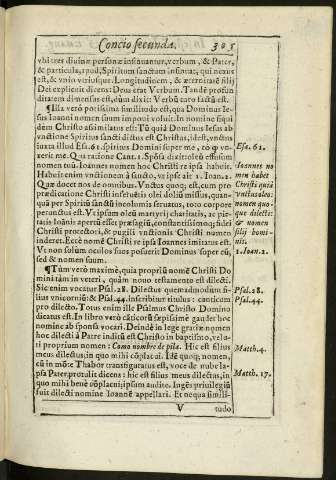 Concio secunda. 305
vbi tres diuinæ personæ insinuantur, verbum, & Pater,
& particula, apud, Spiritum sanctum insinuat, qui nexus
est, & vnio vtriusque. Longitudinem, & æternitatē filij
Dei explicuit dicens: Deus erat Verbum. Tandē profun
ditatem dimensus est, dùm dixit: Verbū caro factū est.
¶ Illa verò potissima similitudo est, qua Dominus Ie-
sus Ioanni nomen suum imponi voluit. In nomine
Christo assimilatus est: Tū quià Dominus Iesus ab
vnctione Spiritus sancti dictus est Christus, idest, vnctus
iuxta illud Esa. 61. spiritus Domini super me, eò q̄ vn-
xerit me. Qua ratione Cant. 1. Spōsa dixit: oleū effusum
nomen tuū. Ioannes nomen hoc Christi re ipsa habuit.
Habuit enim vnctionem à sancto, vt ipse ait 1. Ioan. 2.
Quæ docet nos de omnibus. Vnctus quoq; est, cum præ
dicatione Christi in feruētis olei dolio missus, quan-
quā per Spiritū sanctū incolumis seruatus, toto corpore
perunctus est. Vt ipsum oleū martyrij charitatis, ac pie-
tatis Ioānis aperti esset præsagiū, constantissimoq; fidei
Christi protectori, & pugili vnctionis Christi nomen
inderet. Ecce nomē Christi re ipsa Ioannes imitatus est.
Vt non solum oculos suos posuerit Dominus super eū,
sed & nomen suum.
¶ Tùm verò maximè, quia propriū nomē Christi Do
mini tàm in veteri, quàm nouo testamento est dilecti.
Sic enim vocatur Psal. 28. Dilectus quemadmodùm fi-
lius vnicorniū: & Psal. 44. inscribitur titulus: canticum
pro dilecto. Totus enim ille Psalmus Christo Domino
dicatus est. In libro verò cāticorū sæpissimè gaudet hoc
nomine ab sponsa vocari. Deindè in lege gratiæ nomen
hoc dilecti à Patre inditū est Christo in baptismo, velu-
ti proprium nomen: Como nombre de pila. Hic est filius
meus dilectus, in quo mihi cōplacui. Idē quoq; nomen,
cū in mōte Thabor transfiguratus est, voce de nube la-
psa Pater protulit dicens: hic est filius meus dilectus, in
quo mihi benè cōplacui: ipsum audite. Ingēs priuilegiū
fuit dilecti nomine Ioannē appellari. Et nequa simili-
V tudo
Esa. 61.
Ioannes no
men habet
Christi quià
vnctus oleo:
nomen quo-
que dilecti:
& nomen
filij domi-
nis.
1. Ioan. 2.
Psal. 28.
Psal. 44.
Matth. 4.
Matth. 17.